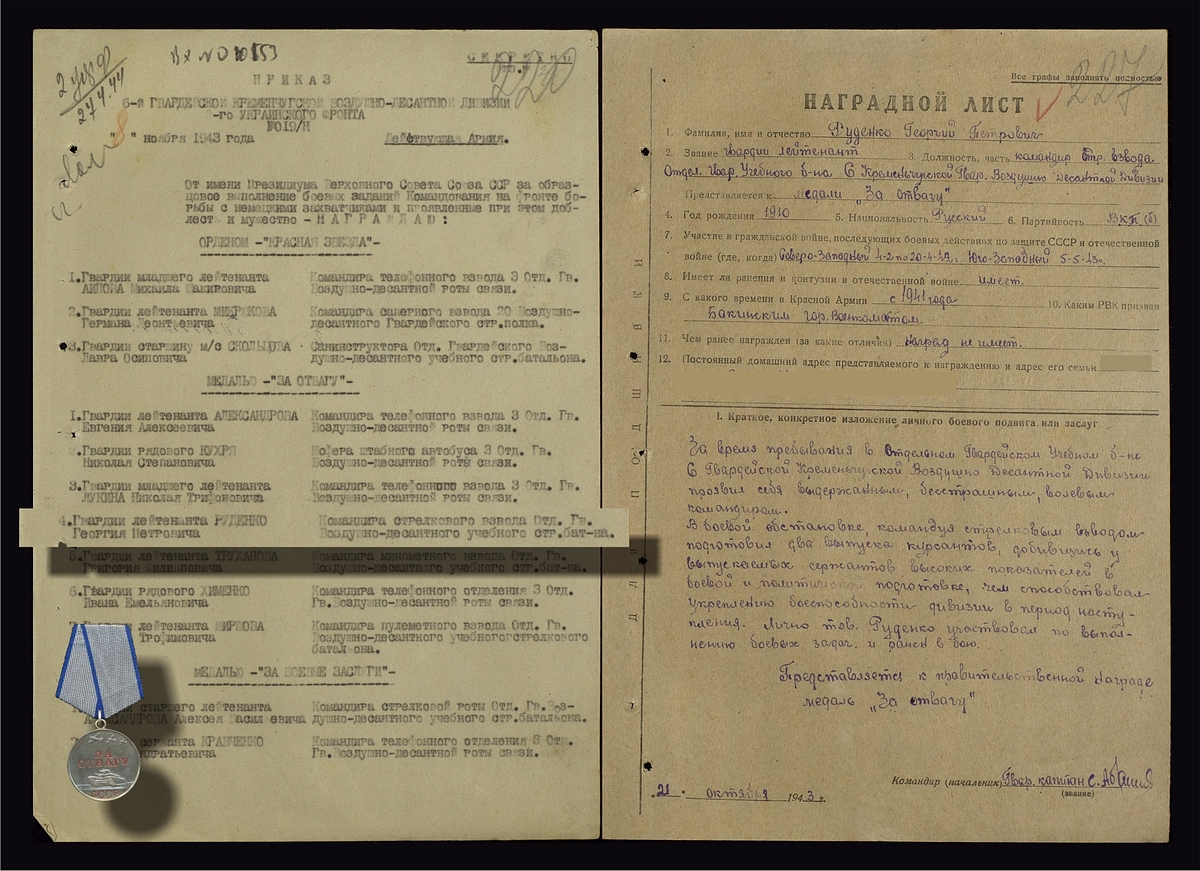 Вх № 010153
2 УКР Ф
27.4.44
СЕКРЕТНО
220
ПРИКАЗ
6-й ГВАРДЕЙСКОЙ КРЕМЕНЧУГСКОЙ ВОЗДУШНО-ДЕСАНТНОЙ ДИВИЗИИ
-го УКРАИНСКОГО ФРОНТА
№019/Н
" " ноября 1943 года Действующая Армия.
От имени Президиума Верховного Совета Союза ССР за образ-
цовое выполнение боевых заданий Командования на фронте бо-
рьбы с немецкими захватчиками и проявленные при этом доб-
лесть и мужество - НАГРАЖДАЮ:
ОРДЕНОМ -"КРАСНАЯ ЗВЕЗДА"-
1.Гвардии младшего лейтенанта Командира телефонного взвода 3 Отд. Гв.
Михаила Шакировича Воздушно-десантной роты связи.
2.Гвардии лейтенанта Командира саперного взвода 20 Воздушно-
Германа Леонтьевича десантного Гвардейского стр.полка.
3.Гвардии старшину м/с СКОЛЬЦОВА Санинструктора Отд. Гвардейского Воз-
Лавра Осиповича душно-десантного учебного стр.батальона.
МЕДАЛЬЮ -"ЗА ОТВАГУ"-
1.Гвардии лейтенанта АЛЕКСАНДРОВА Командира телефонного взвода 3 Отд. Гв.
Евгения Алексеевича Воздушно-десантной роты связи.
2.Гвардии рядового КУХРЯ Шофера штабного автобуса 3 Отд. Гв.
Николая Степановича Воздушно-десантной роты связи.
3.Гвардии младшего лейтенанта Командира телефонного взвода 3 Отд. Гв.
ЛУКИНА Николая Трифоновича Воздушно-десантной роты связи.
4.Гвардии лейтенанта РУДЕНКО Командира стрелкового взвода Отд. Гв.
Георгия Петровича Воздушно-десантного учебного стр.бат-на.
5.Гвардии лейтенанта ТРУХАНОВА Командира минометного взвода Отд. Гв.
Григория Филипповича Воздушно-десантного учебного стр.бат-на.
6.Гвардии рядового ХИМЕНКО Командира телефонного отделения 3 Отд.
Ивана Емельяновича Гв.Воздушно-десантной роты связи.
лейтенанта ШИРШОВА Командира пулеметного взвода Отд. Гв.
Трофимовича Воздушно-десантного учебногострелкового
батальона.
МЕДАЛЬЮ -"ЗА БОЕВЫЕ ЗАСЛУГИ"-
старшего лейтенанта Командира стрелковой роты Отд. Гв.Воз-
АЛЕКСАНДРОВА Алексея Васильевича душно-десантного учебного стр.батальона.
сержанта КРАВЧЕНКО Командира телефонного отделения 3 Отд.
Гв.Воздушно-десантной роты связи.
ЗА
ОТВАГУ
СССР
ДЛЯ ПОДШИВКИ
227
Все графы заполнять полностью
НАГРАДНОЙ ЛИСТ
1. Фамилия, имя и отчество Руденко Георгий Петрович
2. Звание гвардии лейтенант 3. Должность, часть командир стр. взвода
Отдел. Гвар. Учебного б-на 6 Кременчугской Гвар. Воздушно Десантной Дивизии
Представляется к медали „За отвагу"
4. Год рождения 1910 5. Национальность Русский 6. Партийность ВКП(б)
7. Участие в гражданской войне, последующих боевых действиях по защите СССР и отечественной
войне (где, когда) Северо-Западный 4-2 по 20-4-42, Юго-Западный 5-5-43г.
8. Имеет ли ранения и контузии в отечественной войне имеет.
9. С какого времени в Красной Армии с 1941 года 10. Каким РВК призван
Бакинским гор. Военкоматом.
11. Чем ранее награжден (за какие отличия) наград не имеет.
12. Постоянный домашний адрес представляемого к награждению и адрес его семьи
I. Краткое, конкретное изложение личного боевого подвига или заслуг
За время пребывания в Отдельном Гвардейском Учебном б-не
6 Гвардейской Кременчугской Воздушно Десантной Дивизии
проявил себя выдержанным, бесстрашным, волевым
командиром.
В боевой обстановке командуя стрелковым взводом
подготовил два выпуска курсантов, добившись у
выпускаемых сержантов высоких показателей в
боевой и политической подготовке, чем способствовал
укреплению боеспособности дивизии в период насту-
пления. Лично тов. Руденко участвовал по выпол-
нению боевых задач и ранен в бою.
Представляется к правительственной награде
медаль „За отвагу"
Командир (начальник) Гвар. капитан С.
(звание)
„21" октября 1943 г.